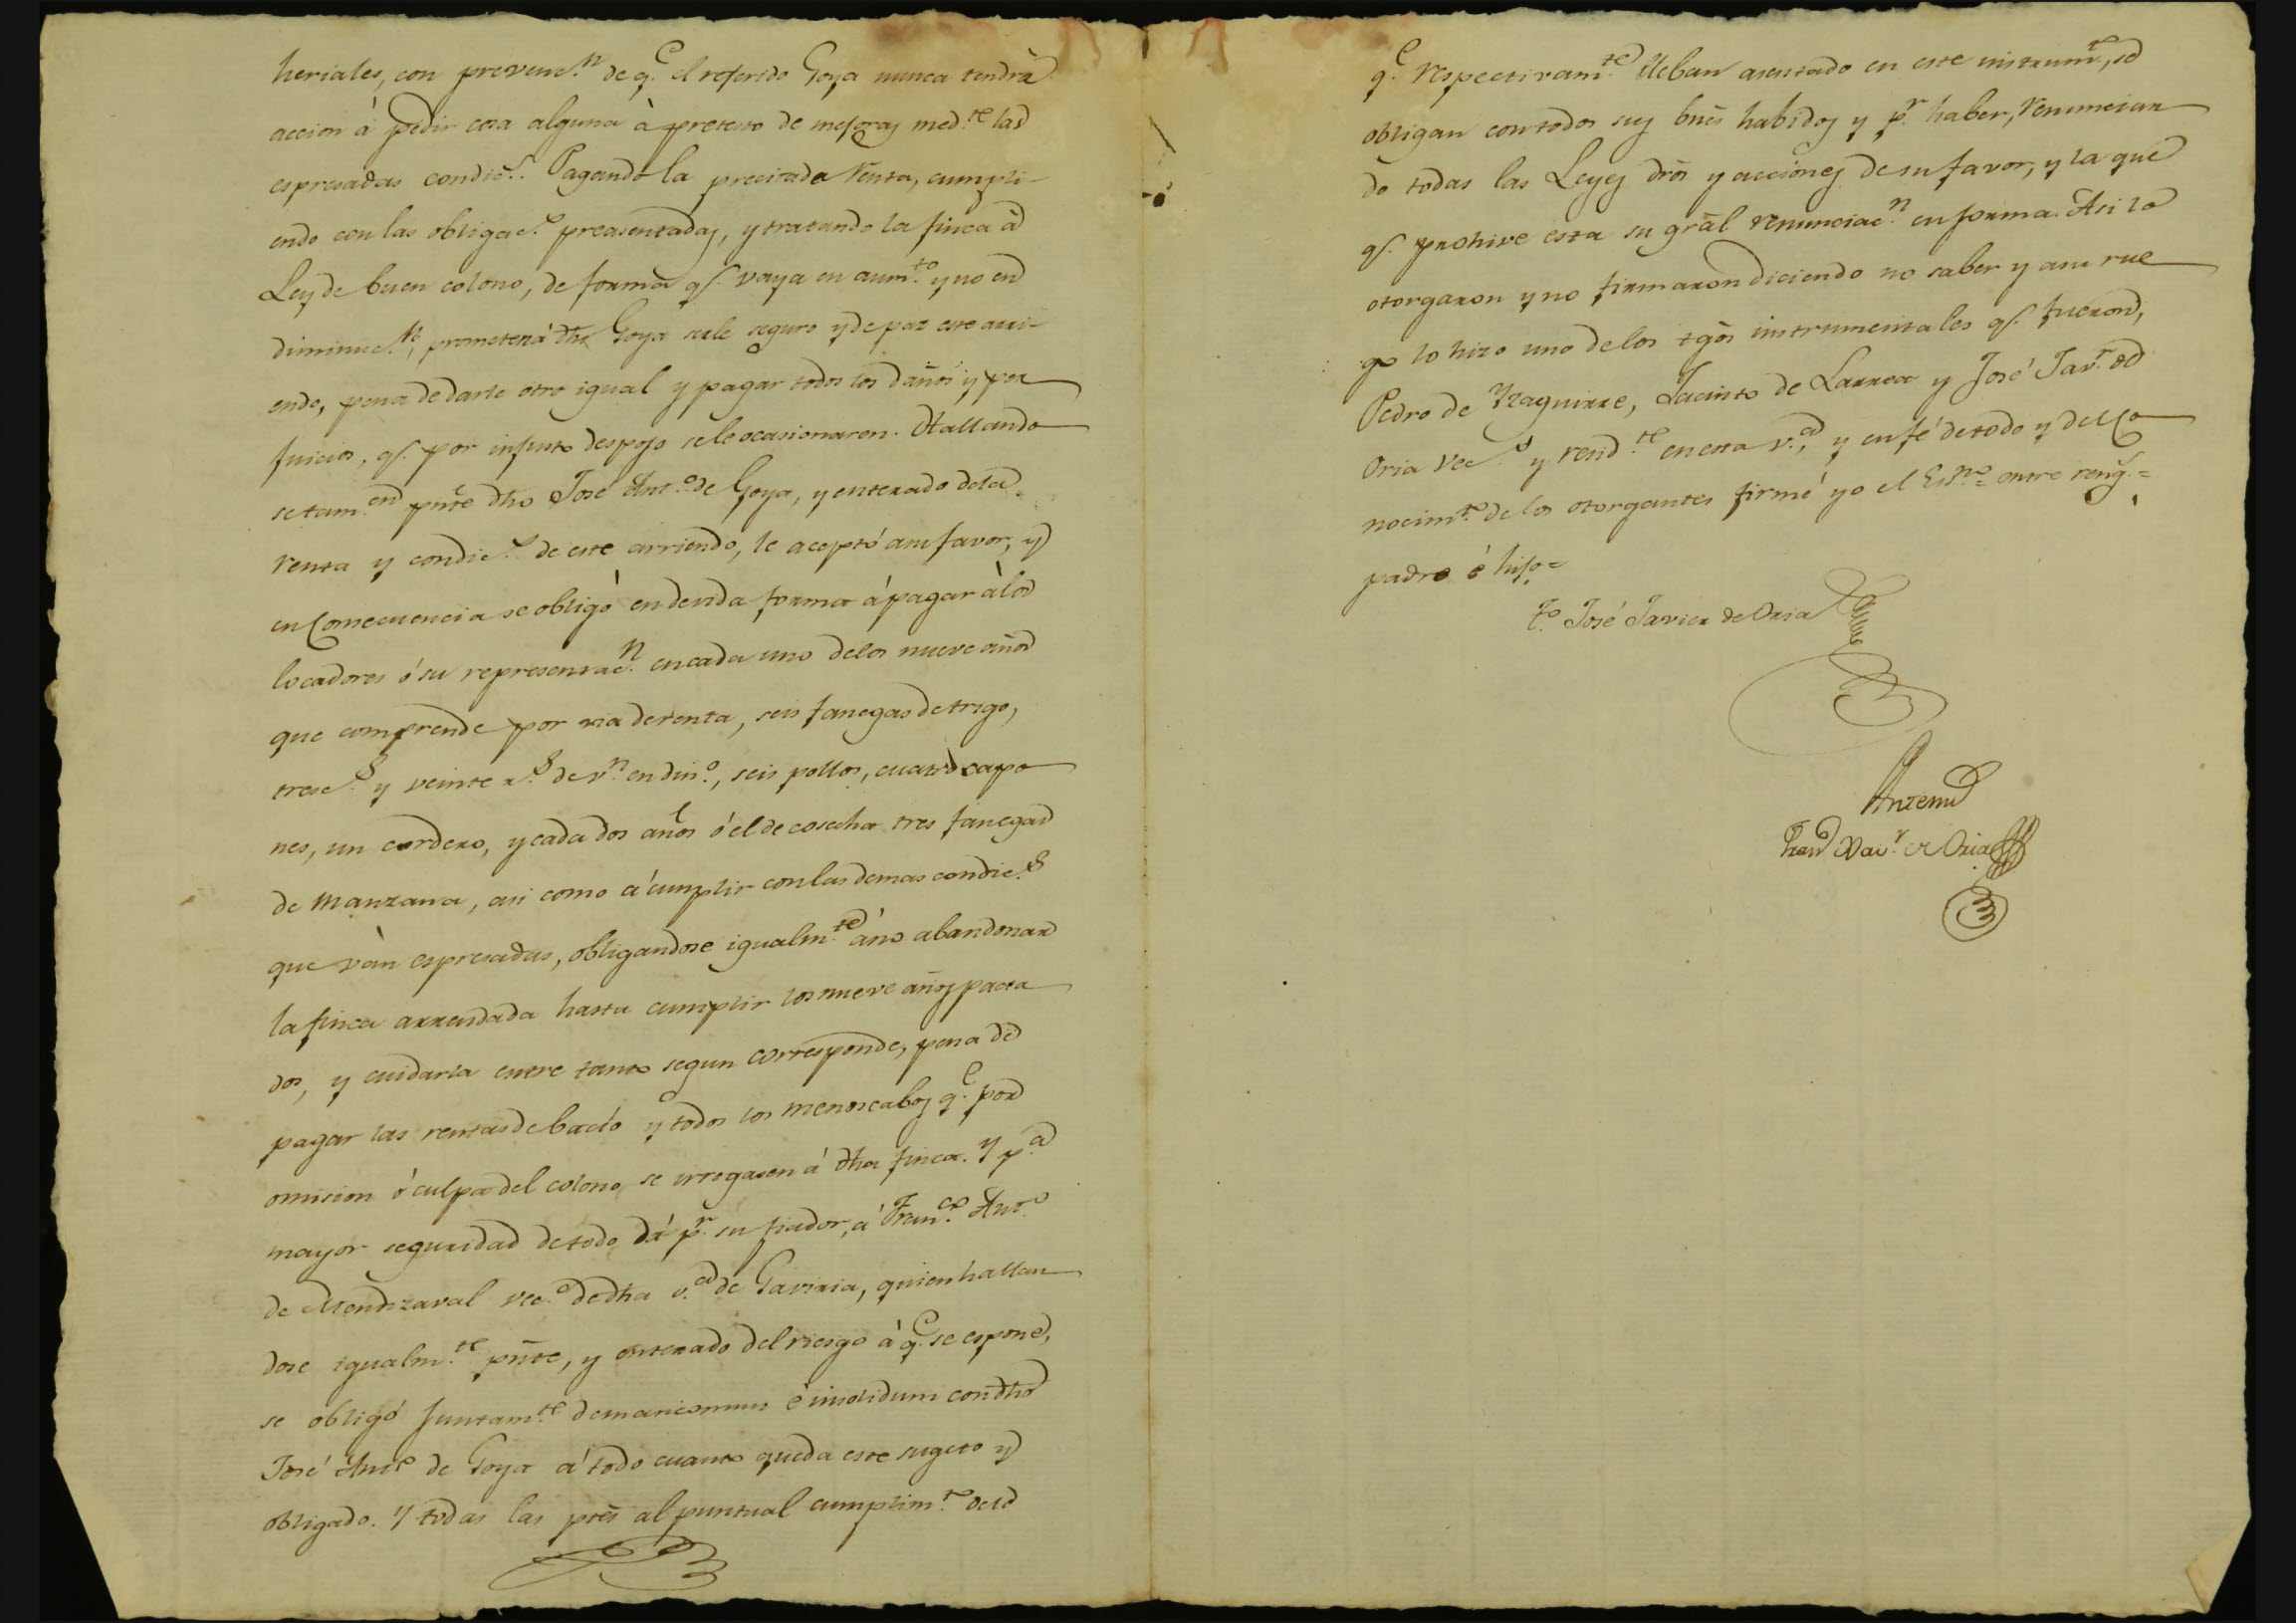 heriales, con prevenc.n de q.e el referido Goya nunca tendrà
accion á pedir cosa alguna à pretesto de mejoras med.te las
espresadas condic.s Pagando la precitada renta, cumpli-
endo con las obligac.s preasentadas, y tratando la finca à
Ley de buen colono, de forma q.e vaya en aum.to y no en
diminuc.n, prometerá dho Goya serle seguro y de paz este arri-
endo, pena de darle otro igual y pagar todos los daños y per
juicios, q.e por injusto despojo se le ocasionaren. Hallando
se tam.en pnte dho José Ant.o de Goya, y enterado de la
renta y condic.s de este arriendo, le aceptó a su favor, y
en Consecuencia se obligó en devida forma á pagar à los
locadores ó su representac.n en cada uno de los nueve años
que comprende por via de renta, seis fanegas de trigo,
tresc.s y veinte r.s de v.n en din.o, seis pollos, cuatro capo
nes, un cordero, y cada dos años ó el de cosecha tres fanegas
de manzana, asi como á cumplir con las demas condic.s
que ván espresadas, obligandose igualm.te á no abandonar
la finca arrendada hasta cumplir los nueve años pacta
dos, y cuidarla entre tanto segun corresponde, pena de
pagar las rentas de bacío y todos los menoscabos q.e por
omision ó culpa del colono se irrogasen á dha finca. Y p.a
mayor seguridad de todo dá p.r su fiador, á Fran.co Ant.o
de Mendizaval vec.o de dha v.a de Gaviria, quien hallan
dose igualm.te pnte, y enterado del riesgo à q.e se espone,
se obligó juntam.te de mancomun é insolidum con dho
José Ant.o de Goya á todo cuanto queda este sugeto y
obligado. Y todas las ptes al puntual cumplim.to de lo
q.e respectivam.te lleban asentado en este instrum.to, se
obligan con todos sus bnes habidos y p.r haber, renuncian
do todas las Leyes dros y acciones de su favor, y la que
q.e prohive esta su gral renunciac.n en forma. Asi lo
otorgaron y no firmaron diciendo no saber y a su rue
go lo hizo uno de los tgos instrumentales q.e fueron,
Pedro de Yzaguirre, Jacinto de Larrea y José Jav.r de
Oria vec.s y resid.te en esta v.a, y en fé de todo y del Co
nocim.to de los otorgantes firmé yo el Es.no = entre reng.s =
padre é hijo =
t.o José Javier de Oria
Antemi
Fran.co Xav.r de Oria